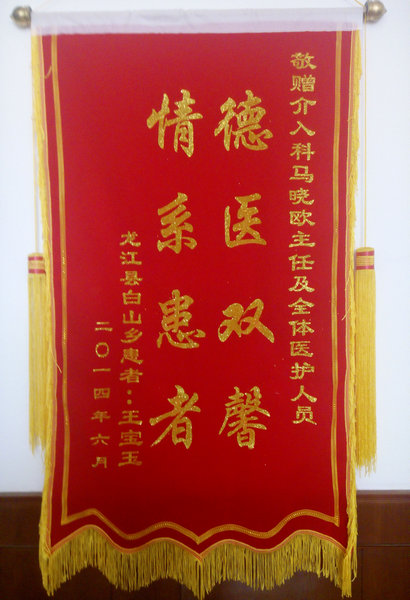 敬赠介入科马晓欧主任及全体医护人员
德医双馨
情系患者
龙江县白山乡患者：王宝玉
二〇一四年六月